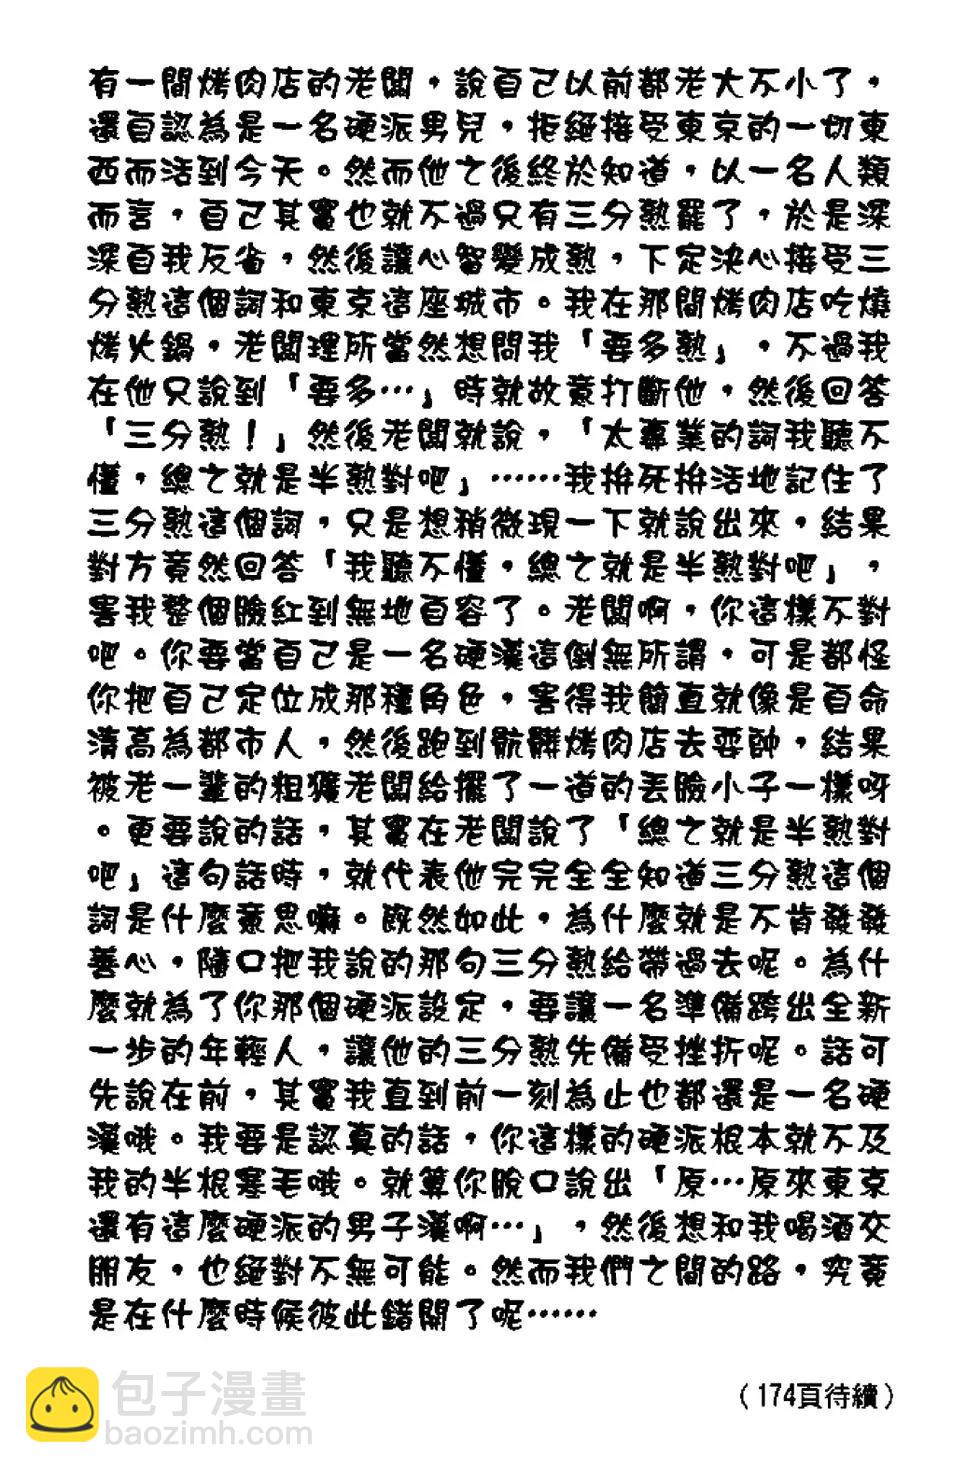 有一間烤肉店的老闆，說自己以前都老大不小了，
還自認為是一名硬派男兒，拒絕接受東京的一切東
西而活到今天。然而他之後終於知道，以一名人類
而言，自己其實也就不過只有三分熟罷了，於是深
深自我反省，然後讓心智變成熟，下定決心接受三
分熟這個詞和東京這座城市。我在那間烤肉店吃燒
烤火鍋，老闆理所當然想問我「要多熟」，不過我
在他只說到「要多…」時就故意打斷他，然後回答
「三分熟！」然後老闆就說，「太專業的詞我聽不
懂，總之就是半熟對吧」……我拚死拚活地記住了
三分熟這個詞，只是想稍微現一下就說出來，結果
對方竟然回答「我聽不懂，總之就是半熟對吧」，
害我整個臉紅到無地自容了。老闆啊，你這樣不對
吧。你要當自己是一名硬漢這倒無所謂，可是都怪
你把自己定位成那種角色，害得我簡直就像是自命
清高為都市人，然後跑到骯髒烤肉店去耍帥，結果
被老一輩的粗獷老闆給擺了一道的丟臉小子一樣呀
。更要說的話，其實在老闆說了「總之就是半熟對
吧」這句話時，就代表他完完全全知道三分熟這個
詞是什麼意思嘛。既然如此，為什麼就是不肯發發
善心，隨口把我說的那句三分熟給帶過去呢。為什
麼就為了你那個硬派設定，要讓一名準備跨出全新
一步的年輕人，讓他的三分熟先備受挫折呢。話可
先說在前，其實我直到前一刻為止也都還是一名硬
漢哦。我要是認真的話，你這樣的硬派根本就不及
我的半根寒毛哦。就算你脫口說出「原…原來東京
還有這麼硬派的男子漢啊…」，然後想和我喝酒交
朋友，也絕對不無可能。然而我們之間的路，究竟
是在什麼時候彼此錯開了呢……
（174頁待續）
包子漫畫
baozimh.com